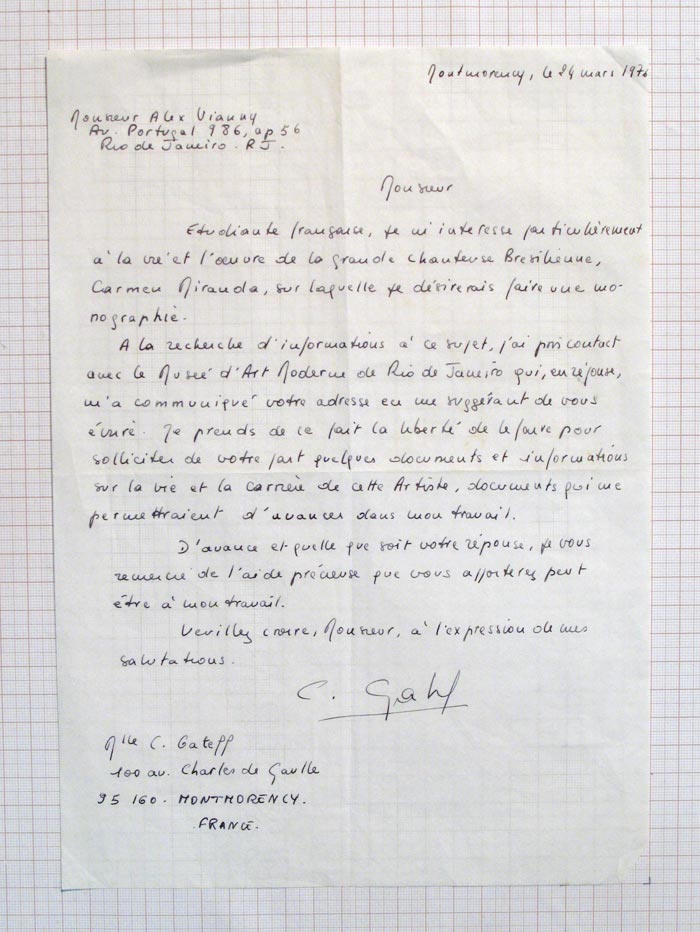 Montmorency, le 24 mars 1976
Monsieur Alex Vianny
Av. Portugal 986, ap 56
Rio de Janeiro. RJ.
Monsieur
Etudiante française, je m'interesse particulièrement
à la vie et l'œuvre de la grande chanteuse Bresilienne,
Carmen Miranda, sur laquelle je désirerais faire une mo-
nographie.
A la recherche d'informations à ce sujet, j'ai pris contact
avec le Museé d'Art Moderne de Rio de Janeiro qui, en réponse,
m'a communiqué votre adresse en me suggérant de vous
écrire. Je prends de ce fait la liberté de le faire pour
solliciter de votre part quelques documents et informations
sur la vie et la carrière de cette Artiste, documents qui me
permettraient d'avancer dans mon travail.
D'avance et quelle que soit votre réponse, je vous
remercie de l'aide précieuse que vous apporterez peut
être à mon travail.
Veuillez croire, Monsieur, à l'expression de mes
salutations.
C. Gateff
Mlle C. Gateff
100 av. Charles de Gaulle
95 160. MONTMORENCY.
FRANCE.